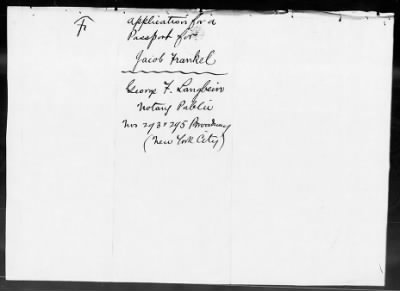 Fr
Application for a
Passport for
Jacob Frankel
George F. Langbein
Notary Public
Nos 293 & 295 Broadway
(New York City)